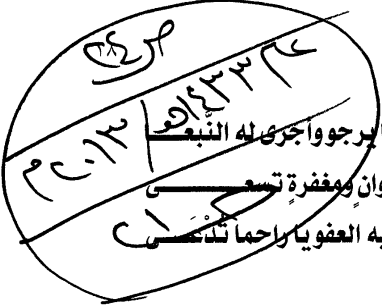 عام ١٤٣٣هـ / ٢٠١٣م
يرجو وأجرى له النَّبعـــا
وانٍ ومغفرةٍ تسعـــى
به العفو يا راحماً تُدْعَـــى